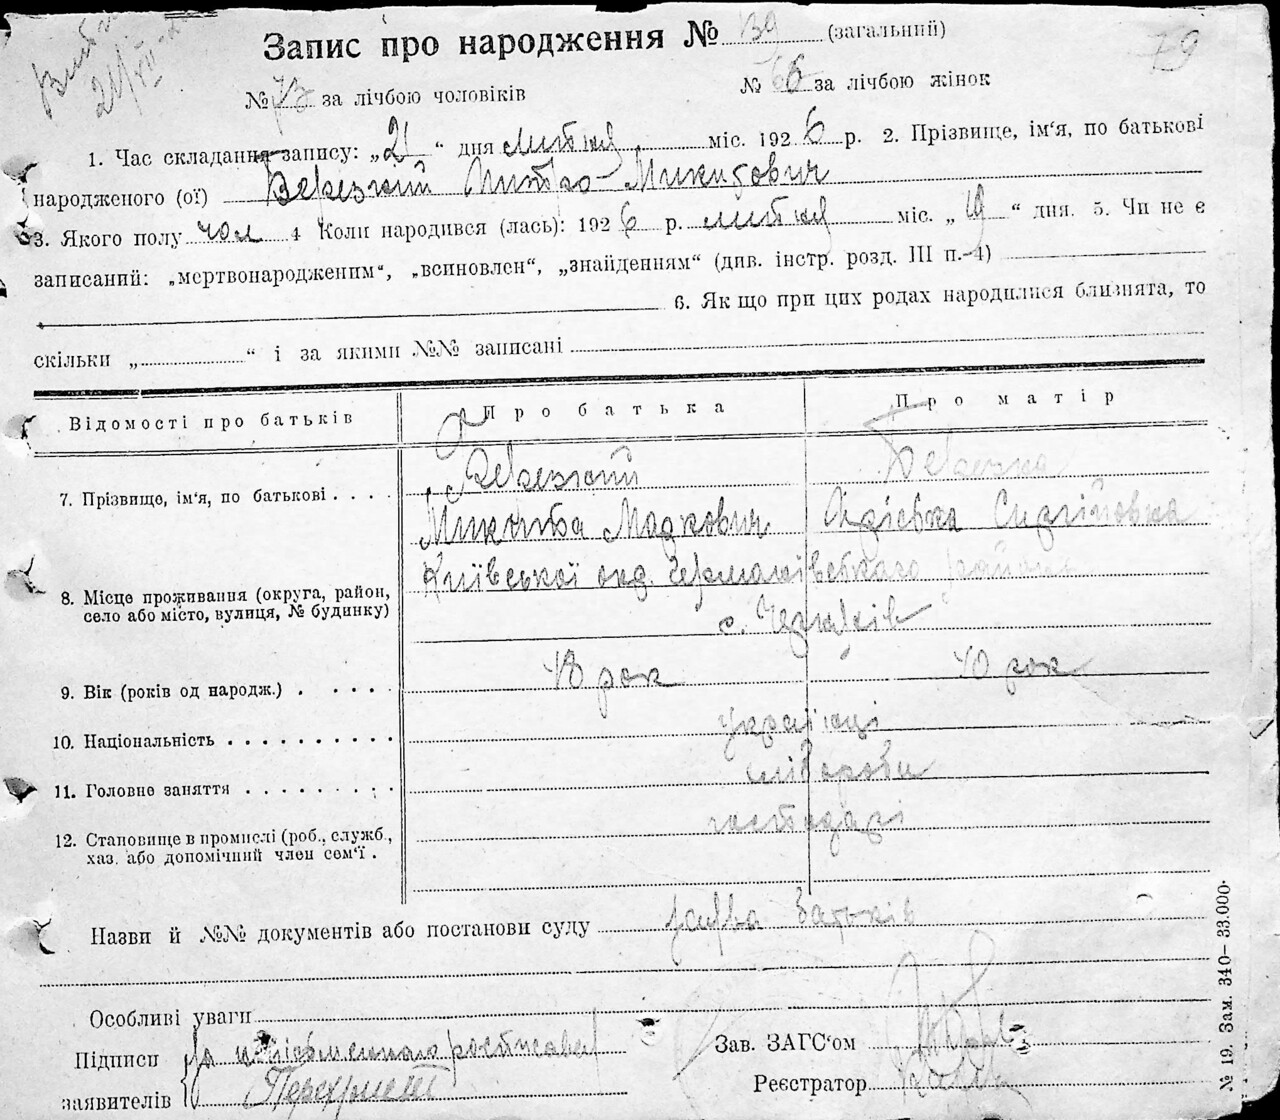 Запис про народження № 139 (загальний)
79
№ 73 за лічбою чоловіків № 66 за лічбою жінок
1. Час складання запису: „21“ дня лютня міс. 1926 р. 2. Прізвище, ім‘я, по батькові
народженого (ої) Березкий Митро Микитович
3. Якого полу чол 4 Коли народився (лась): 1926 р. лютня міс. „19“ дня. 5. Чи не є
записаний: „мертвонародженим“, „всиновлен“, „знайденням“ (див. інстр. розд. III п.-4)
6. Як що при цих родах народилися близнята, то
скільки „ “ і за якими №№ записані
Відомості про батьків Про батька Про матір
7. Прізвище, ім‘я, по батькові . . . .
Березкий
Микита Маркович
8. Місце проживання (округа, район,
село або місто, вулиця, № будинку)
Київської окр. Германівського району
с.
9. Вік (років од народж.) . . . . . 48 рок 40 рок
10. Національність . . . . . . . . . . українці
11. Головне заняття . . . . . . . . . хлібороби
12. Становище в промислі (роб., служб.,
хаз. або допомічний член сем‘ї .
господарі
Назви й №№ документів або постанови суду заява батьків
Особливі уваги
Підписи за неписьменного росписався
заявителів
Зав. ЗАГС‘ом
Реєстратор
№ 19. Зам. 340–33.000.